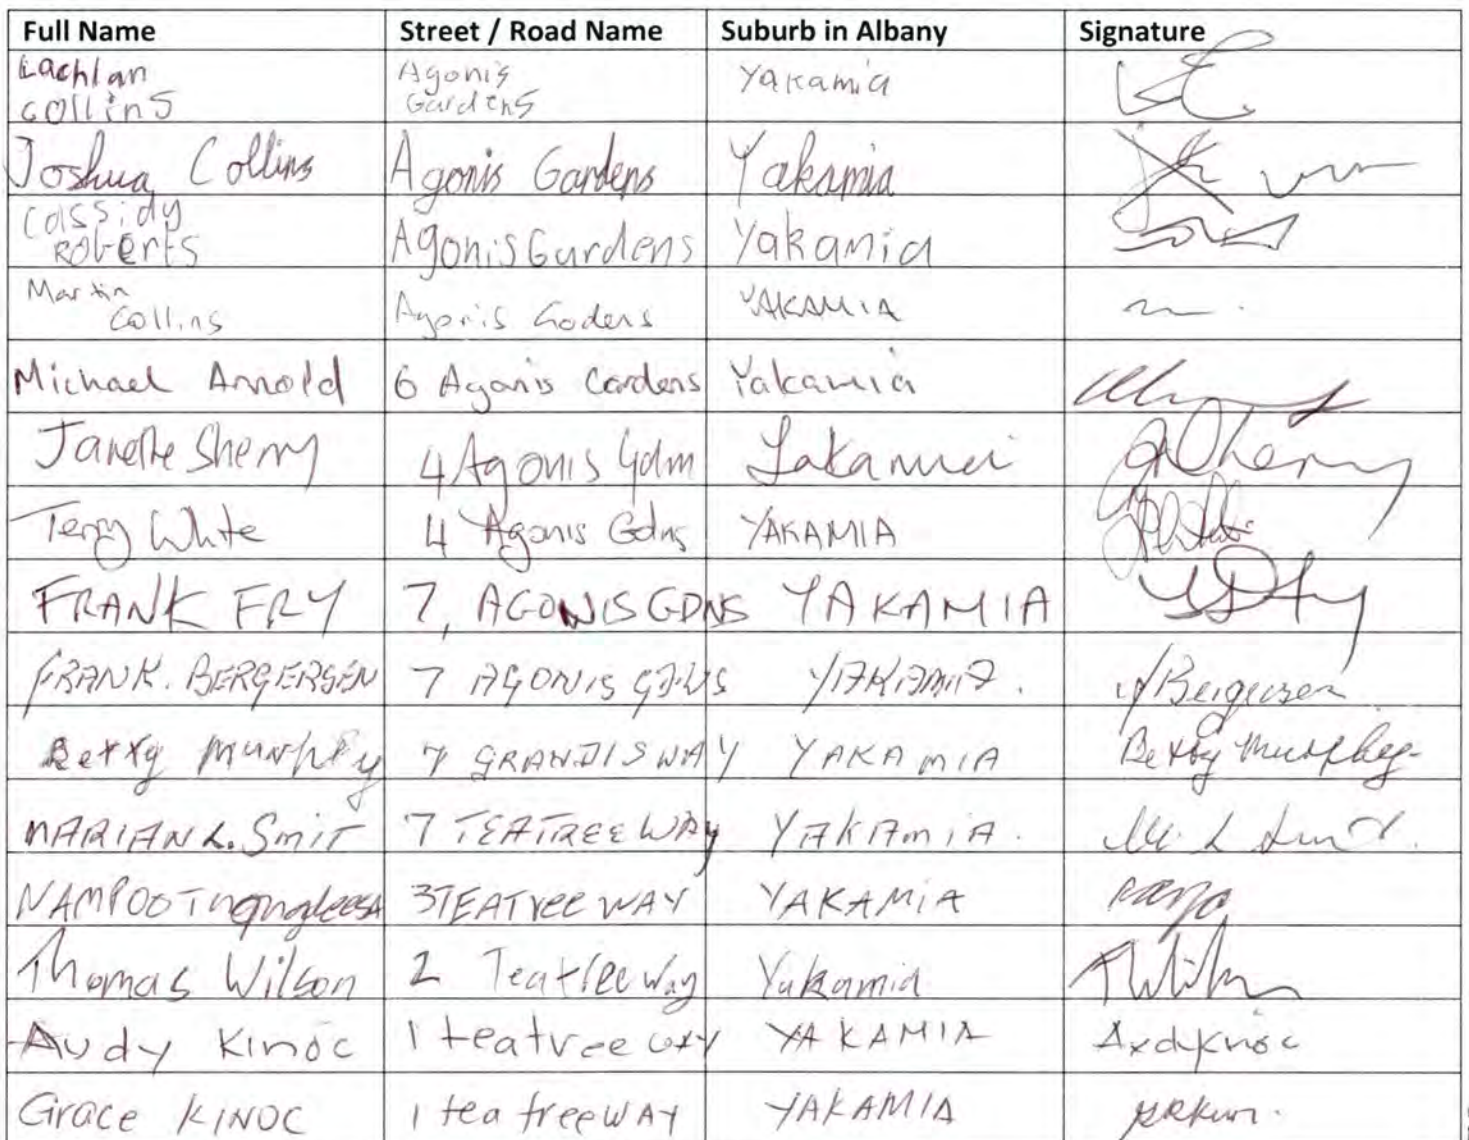 Full Name Street / Road Name Suburb in Albany Signature
Lachlan Collins Agonis Gardens Yakamia
Joshua Collins Agonis Gardens Yakamia
Cassidy Roberts Agonis Gardens Yakamia
Martin Collins Agonis Godens YAKAMIA
Michael Arnold 6 Agonis Gardens Yakamia
Janette Sherry 4 Agonis Yakamia
Terry White 4 Agonis Gdns YAKAMIA
FRANK FRY 7, AGONIS GDNS YAKAMIA
FRANK. BERGERSEN 7 AGONIS GDNS YAKAMIA. Bergersen
Betty Murphy 7 GRANDIS WAY YAKAMIA Betty Murphy
MARIAN L. Smit 7 TEATREE WAY YAKAMIA. M. L Smit.
NAMPOO 3 TEATree WAY YAKAMIA
Thomas Wilson 2 Teatree Way Yakamia
Audy Kinoc 1 teatree WAY YAKAMIA
Grace KINOC 1 tea tree WAY YAKAMIA